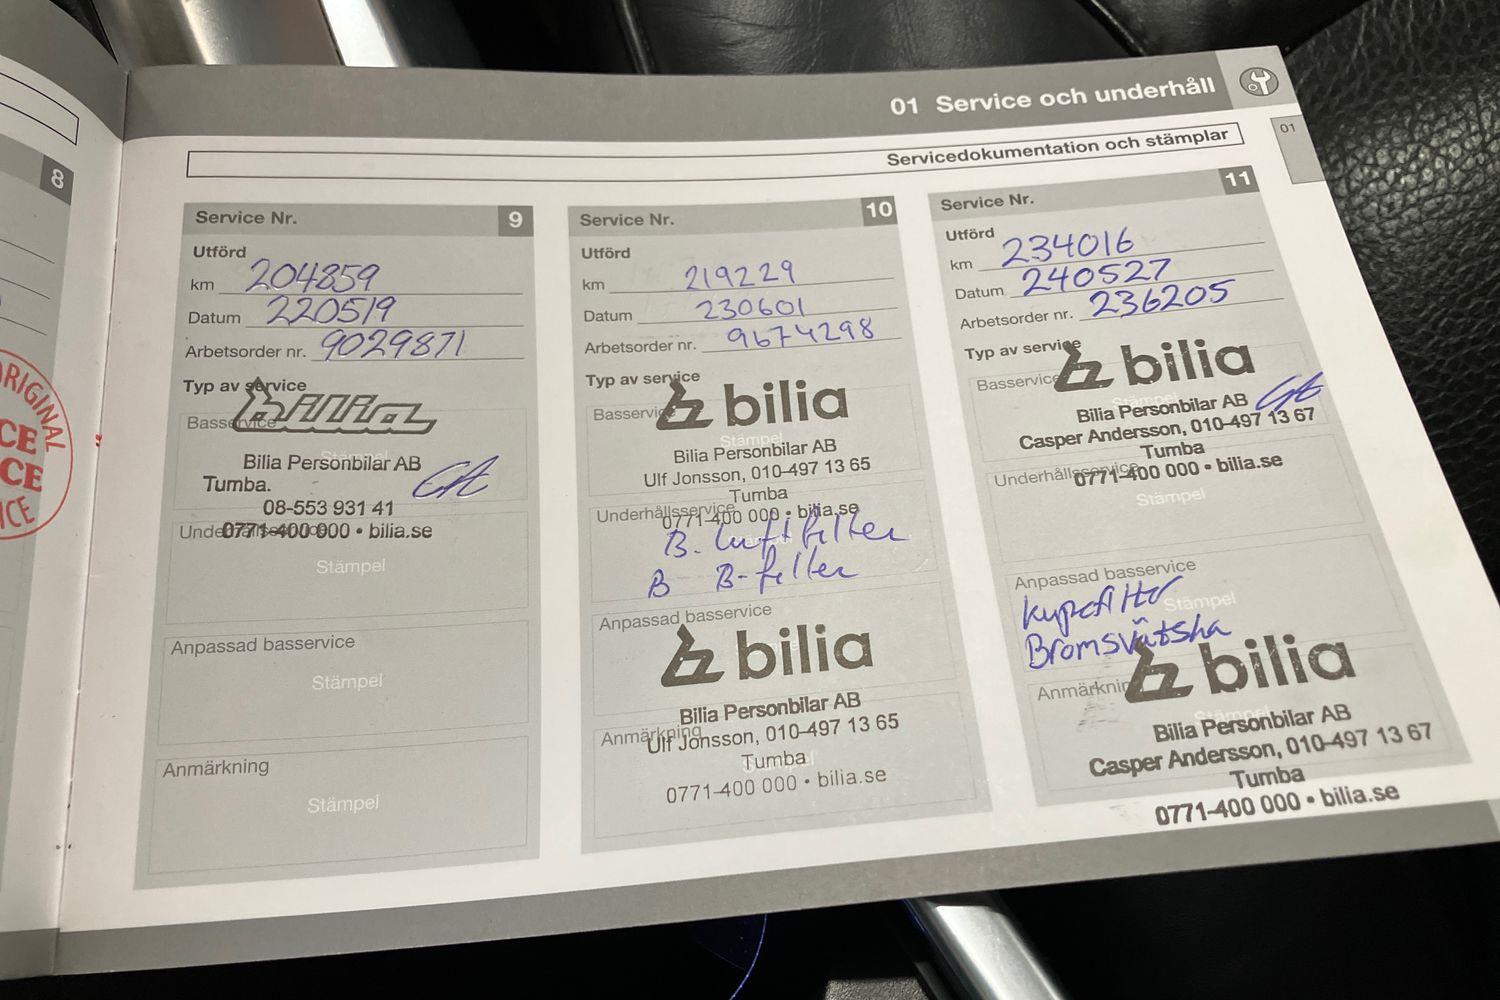 01 Service och underhåll
01
Servicedokumentation och stämplar
8
ORIGINAL
CE
CE
ICE
Service Nr. 9
Utförd
km 204859
Datum 220519
Arbetsorder nr. 9029871
Typ av service
Basservice
Stämpel
bilia
Bilia Personbilar AB
Tumba.
08-553 931 41
0771-400 000 • bilia.se
Stämpel
Anpassad basservice
Stämpel
Anmärkning
Stämpel
Service Nr. 10
Utförd
km 219229
Datum 230601
Arbetsorder nr. 9674298
Typ av service
Basservice
bilia
Stämpel
Bilia Personbilar AB
Ulf Jonsson, 010-497 13 65
Tumba
Underhållsservice
0771-400 000 • bilia.se
B. Luftfilter
B B-filter
Anpassad basservice
bilia
Bilia Personbilar AB
Anmärkning
Ulf Jonsson, 010-497 13 65
Tumba
0771-400 000 • bilia.se
Service Nr. 11
Utförd
km 234016
Datum 240527
Arbetsorder nr. 236205
Typ av service
Basservice
bilia
Stämpel
Bilia Personbilar AB
Casper Andersson, 010-497 13 67
Tumba
Underhållsservice
0771-400 000 • bilia.se
Stämpel
Anpassad basservice
Kupefilter
Stämpel
Bromsvätska
Anmärkning
bilia
Stämpel
Bilia Personbilar AB
Casper Andersson, 010-497 13 67
Tumba
0771-400 000 • bilia.se